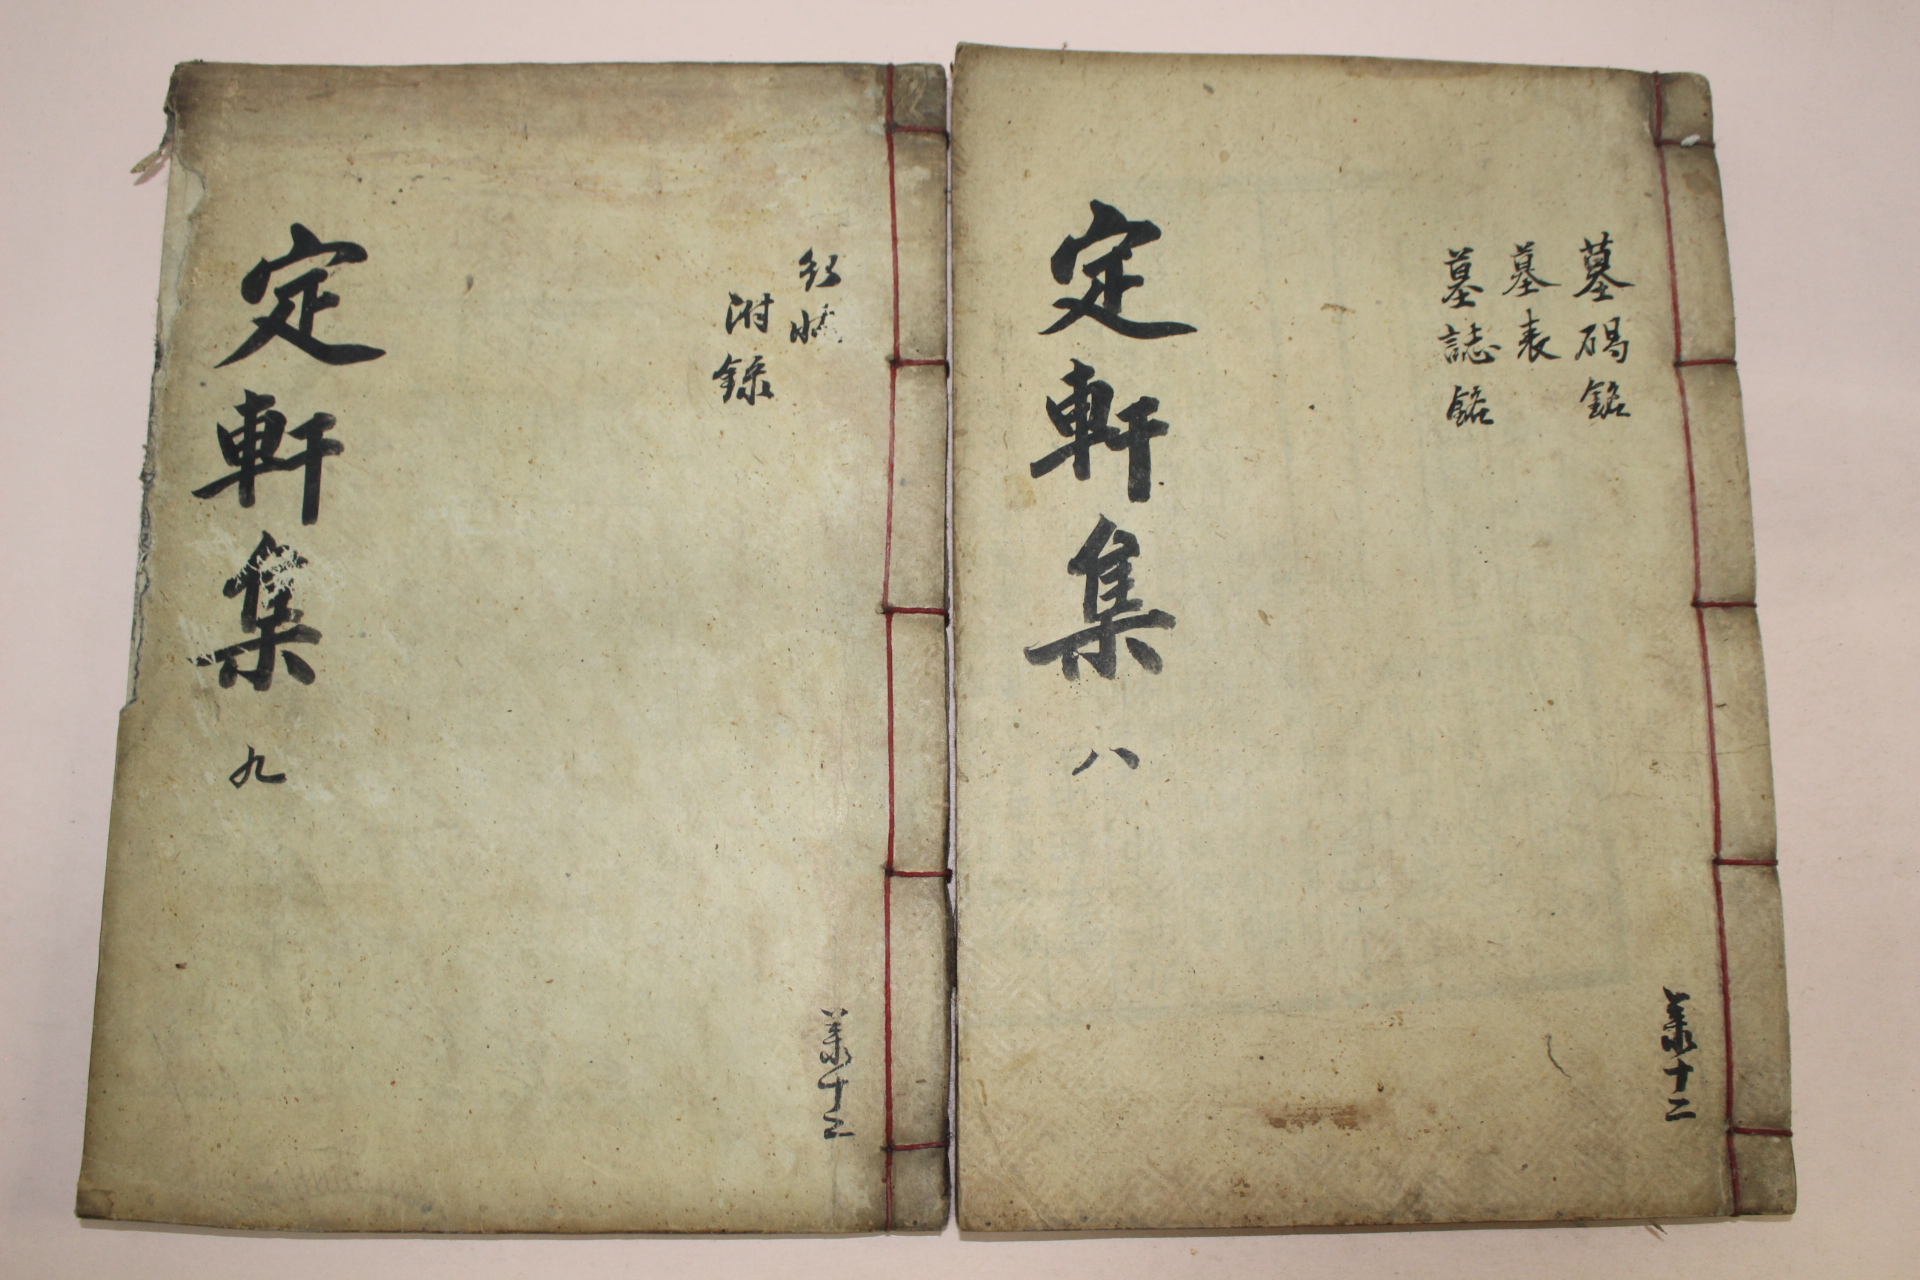 墓碣銘
墓表
墓誌銘
定軒集 八
十二
行狀
附錄
定軒集 九
十二